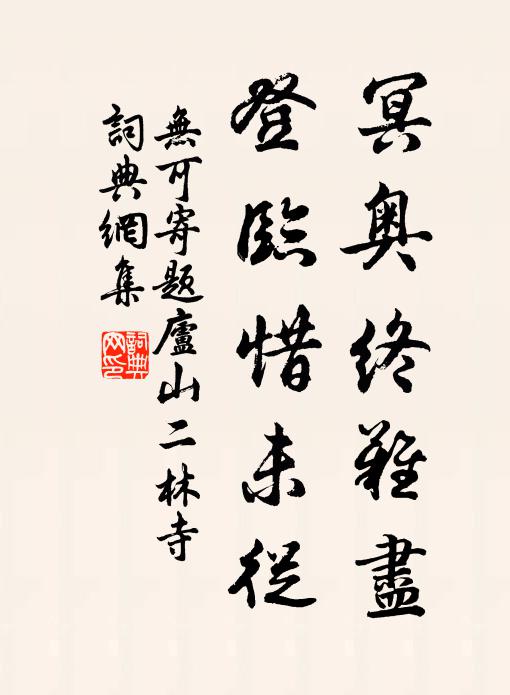 冥奥終難盡
登臨惜未從
無可寄題廬山二林寺
詞典網集
詞典
网印